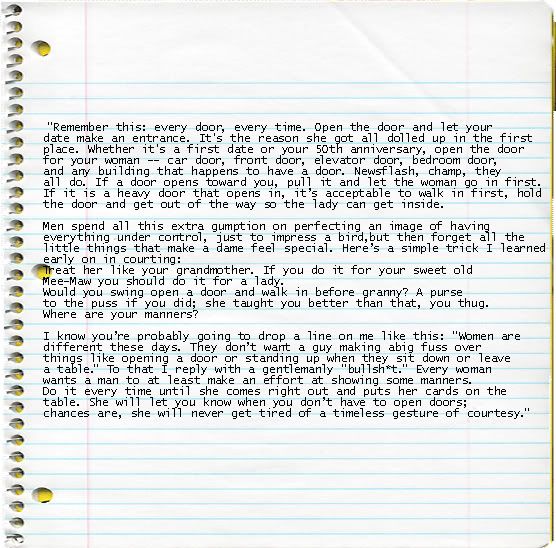 "Remember this: every door, every time. Open the door and let your
date make an entrance. It's the reason she got all dolled up in the first
place. Whether it's a first date or your 50th anniversary, open the door
for your woman -- car door, front door, elevator door, bedroom door,
and any building that happens to have a door. Newsflash, champ, they
all do. If a door opens toward you, pull it and let the woman go in first.
If it is a heavy door that opens in, it's acceptable to walk in first, hold
the door and get out of the way so the lady can get inside.
Men spend all this extra gumption on perfecting an image of having
everything under control, just to impress a bird,but then forget all the
little things that make a dame feel special. Here's a simple trick I learned
early on in courting:
Treat her like your grandmother. If you do it for your sweet old
Mee-Maw you should do it for a lady.
Would you swing open a door and walk in before granny? A purse
to the puss if you did; she taught you better than that, you thug.
Where are your manners?
I know you're probably going to drop a line on me like this: "Women are
different these days. They don't want a guy making abig fuss over
things like opening a door or standing up when they sit down or leave
a table." To that I reply with a gentlemanly "bullsh*t." Every woman
wants a man to at least make an effort at showing some manners.
Do it every time until she comes right out and puts her cards on the
table. She will let you know when you don't have to open doors;
chances are, she will never get tired of a timeless gesture of courtesy."